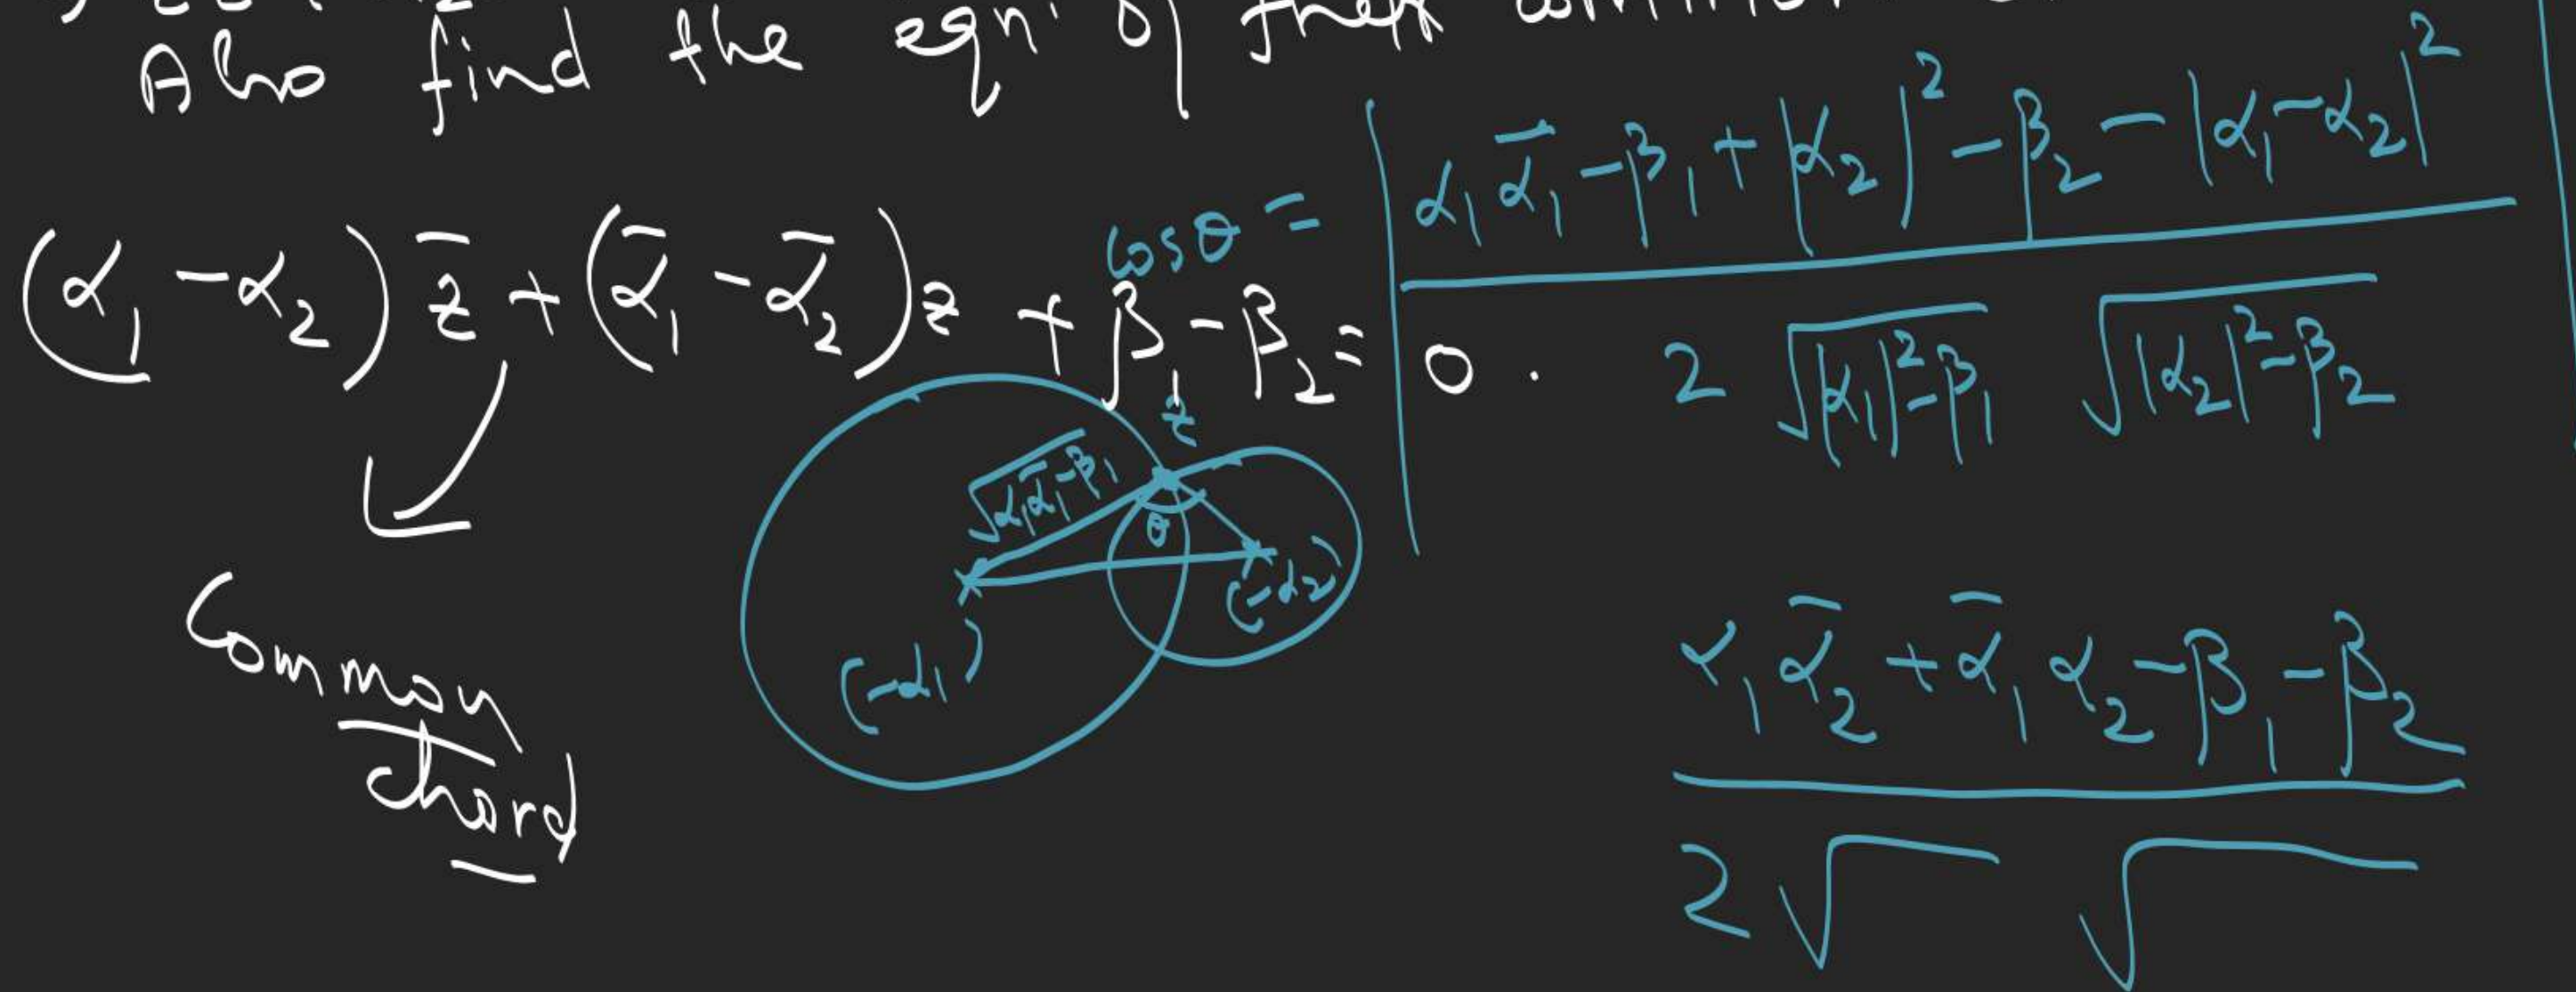 Also find the eqn. of their
(α₁ - α₂) z̅ + (α̅₁ - α̅₂) z + β₁ - β₂ = 0.
Common
chord
cosθ = | α₁ α̅₁ - β₁ + |α₂|² - β₂ - |α₁ - α₂|²
2 √(|α₁|² - β₁) √(|α₂|² - β₂)
z
√(α₁α̅₁ - β₁)
θ
(-α₂)
(-α₁)
α₁ α̅₂ + α̅₁ α₂ - β₁ - β₂
2 √ √